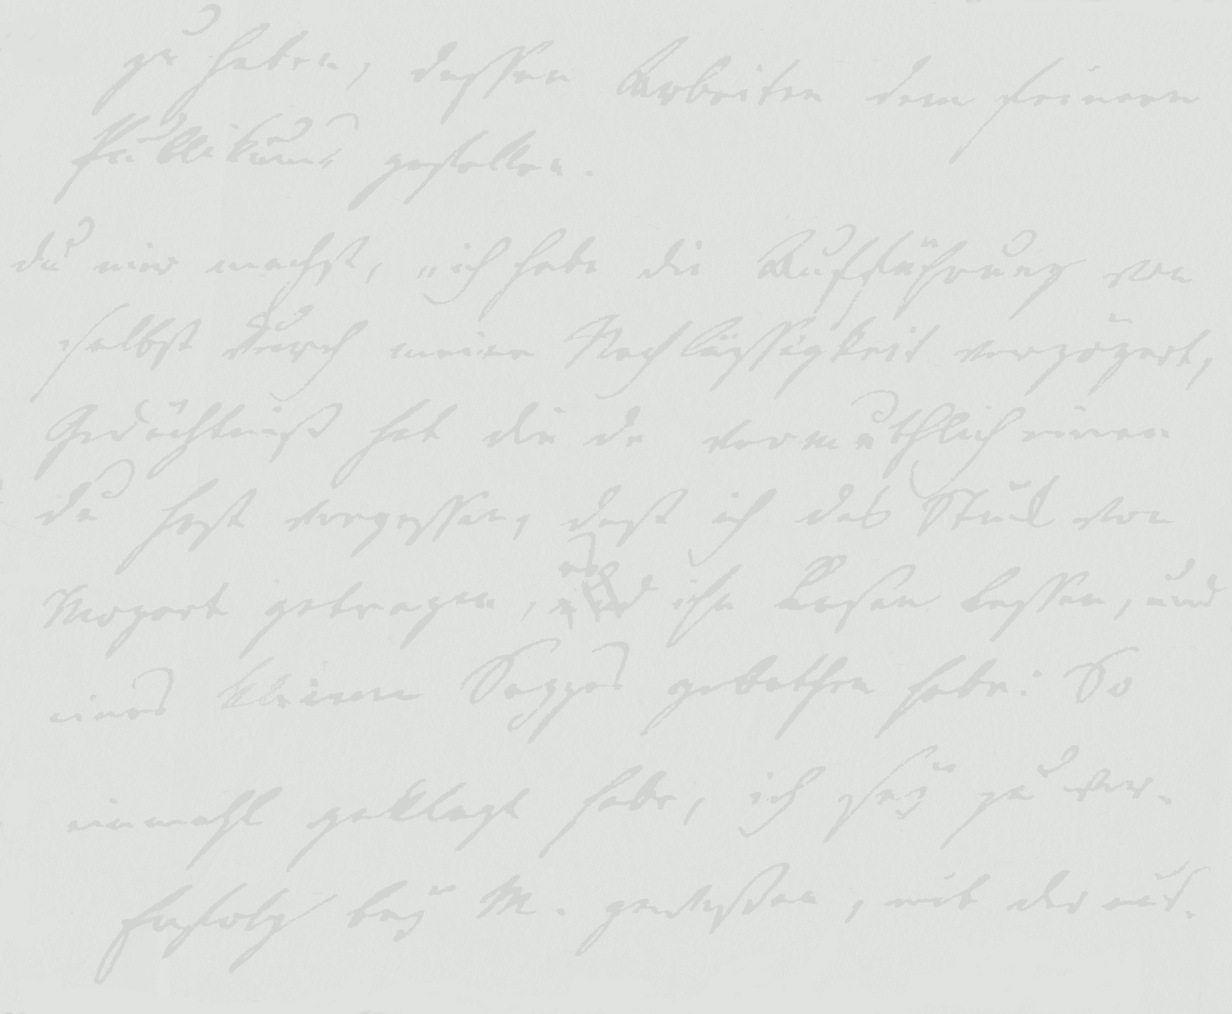 zu haben, dessen Arbeiten dem feinern
Publikum gefallen.
du mir machst, „ich habe die Aufführung von
selbst durch meine Nachlässigkeit verzögert,
Gedächtniß hat die da vermuthlich einen
du hast vergessen, daß ich das Stück von
Mozart getragen, und ihn lesen lassen, und
eines kleinen gebethen habe: So
einmahl geklagt habe, ich sey zu ver-
Erfolg bey M. gewesen, mit der aus-